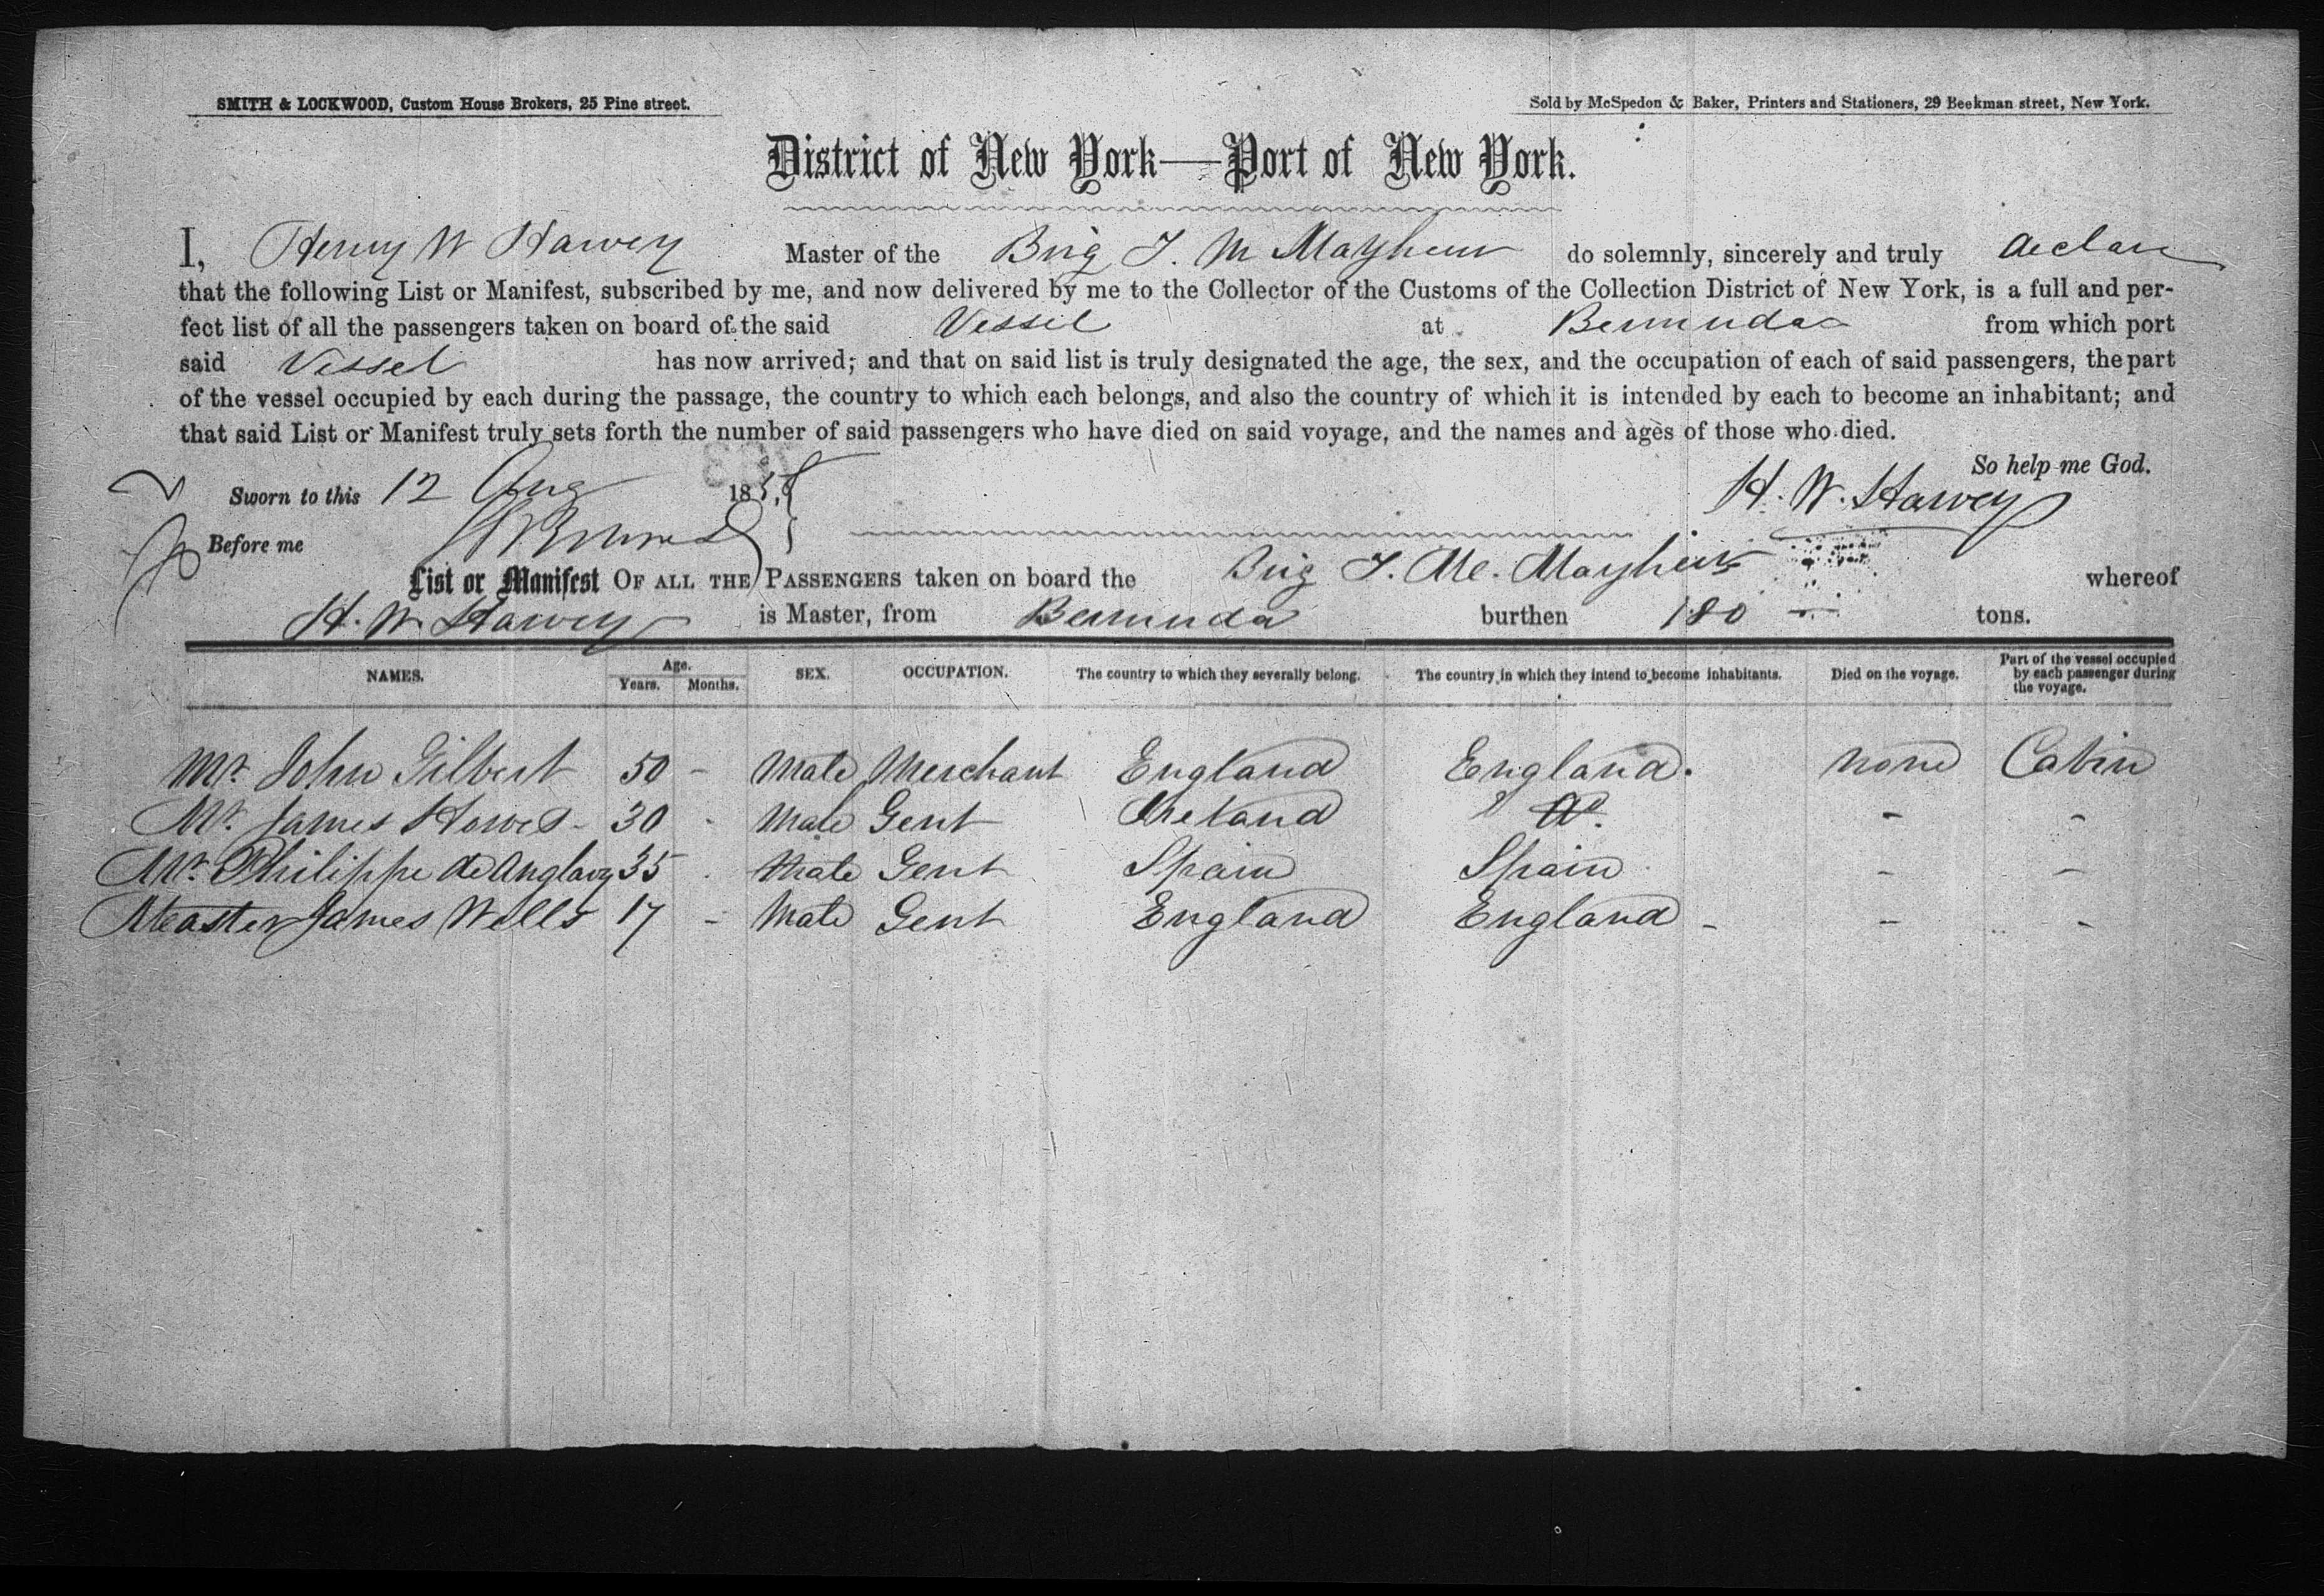 SMITH & LOCKWOOD, Custom House Brokers, 25 Pine street.
Sold by McSpedon & Baker, Printers and Stationers, 29 Beekman street, New York.
District of New York—Port of New York.
I, Henry W Harvey Master of the Brig T. M Mayhew do solemnly, sincerely and truly declare
that the following List or Manifest, subscribed by me, and now delivered by me to the Collector of the Customs of the Collection District of New York, is a full and per-
fect list of all the passengers taken on board of the said Vessel at Bermuda from which port
said Vessel has now arrived; and that on said list is truly designated the age, the sex, and the occupation of each of said passengers, the part
of the vessel occupied by each during the passage, the country to which each belongs, and also the country of which it is intended by each to become an inhabitant; and
that said List or Manifest truly sets forth the number of said passengers who have died on said voyage, and the names and ages of those who died.
So help me God.
Sworn to this 12 Aug 185
H. W. Harvey
Before me
List or Manifest OF ALL THE PASSENGERS taken on board the Brig T. M. Mayhew whereof
H. W. Harvey is Master, from Bermuda burthen 180 tons.
NAMES. Age. Years. Months. SEX. OCCUPATION. The country to which they severally belong. The country in which they intend to become inhabitants. Died on the voyage. Part of the vessel occupied by each passenger during the voyage.
Mr. John Gilbert 50 - Male Merchant England England. none Cabin
Mr. James 30 - Male Gent Ireland Do. - -
Mr. Philippe de 35 - Male Gent Spain Spain - -
Master James Wells 17 - Male Gent England England - - -